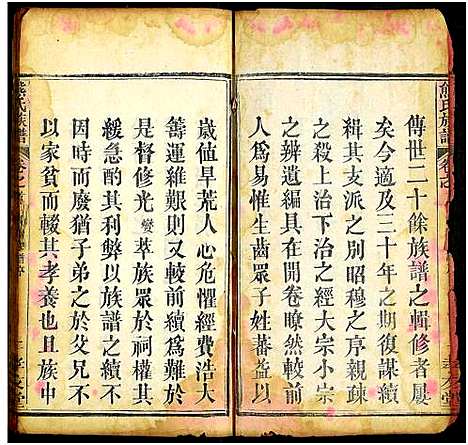 熊氏族譜
傳世二十餘族譜之輯修者屢
矣今適及三十年之期復謀續
緝其支派之別昭穆之序親疎
之殺上治下治之經大宗小宗
之辨遺編具在開卷瞭然顧以
人爲易惟生齒眾子姓蕃益以
歲值旱荒人心危懼經費浩大
籌運維艱則又較前續爲難於
時督修光燮萃族眾於祠權其
緩急酌其利弊以族譜之續不
因時而廢猶子弟之於父兄不
以家貧而輟其孝養也且族中
熊氏族譜
孝友堂